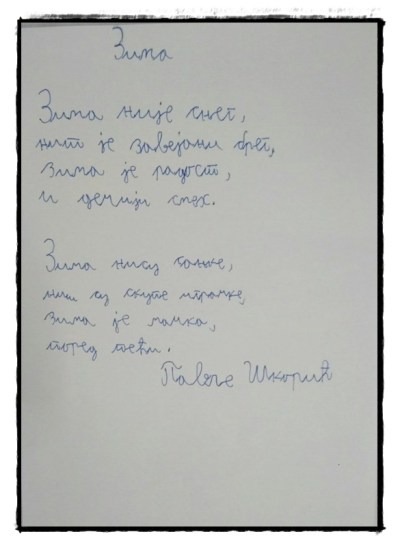 Зима
Зима није снег,
нит је завејани брег,
зима је радост,
и дечији смех.
Зима нису сањке,
нит су скупе играчке,
зима је мачка,
поред пећи.
Павле Шкорић